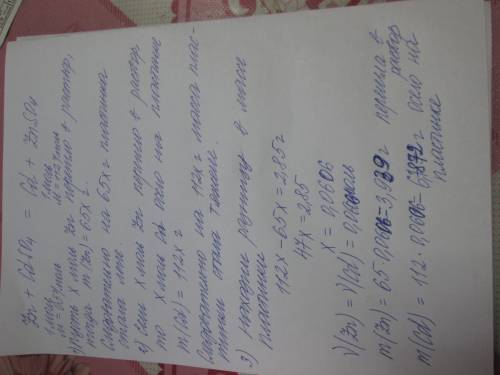 Zn + CdSO4 = Cd + ZnSO4
1 моль 1 моль
M = 65 г/моль M = 112 г/моль
1) пусть x моль Zn перешло в раствор,
тогда m(Zn) = 65x г.
Следовательно на 65x г пластинка
стала легче.
2) Если x моль Zn перешло в раствор
то x моль Cd осело на пластине
m(Cd) = 112x г
Следовательно на 112x г масса плас-
тинки стала тяжелее.
3) находим разницу в массе
пластинки
112x - 65x = 2,85 г
47x = 2,85
x = 0,0606
ν(Zn) = ν(Cd) = 0,0606 моль
m(Zn) = 65 · 0,0606 = 3,939 г перешло в
раствор
m(Cd) = 112 · 0,0606 = 6,7872 г осело на
пластинке